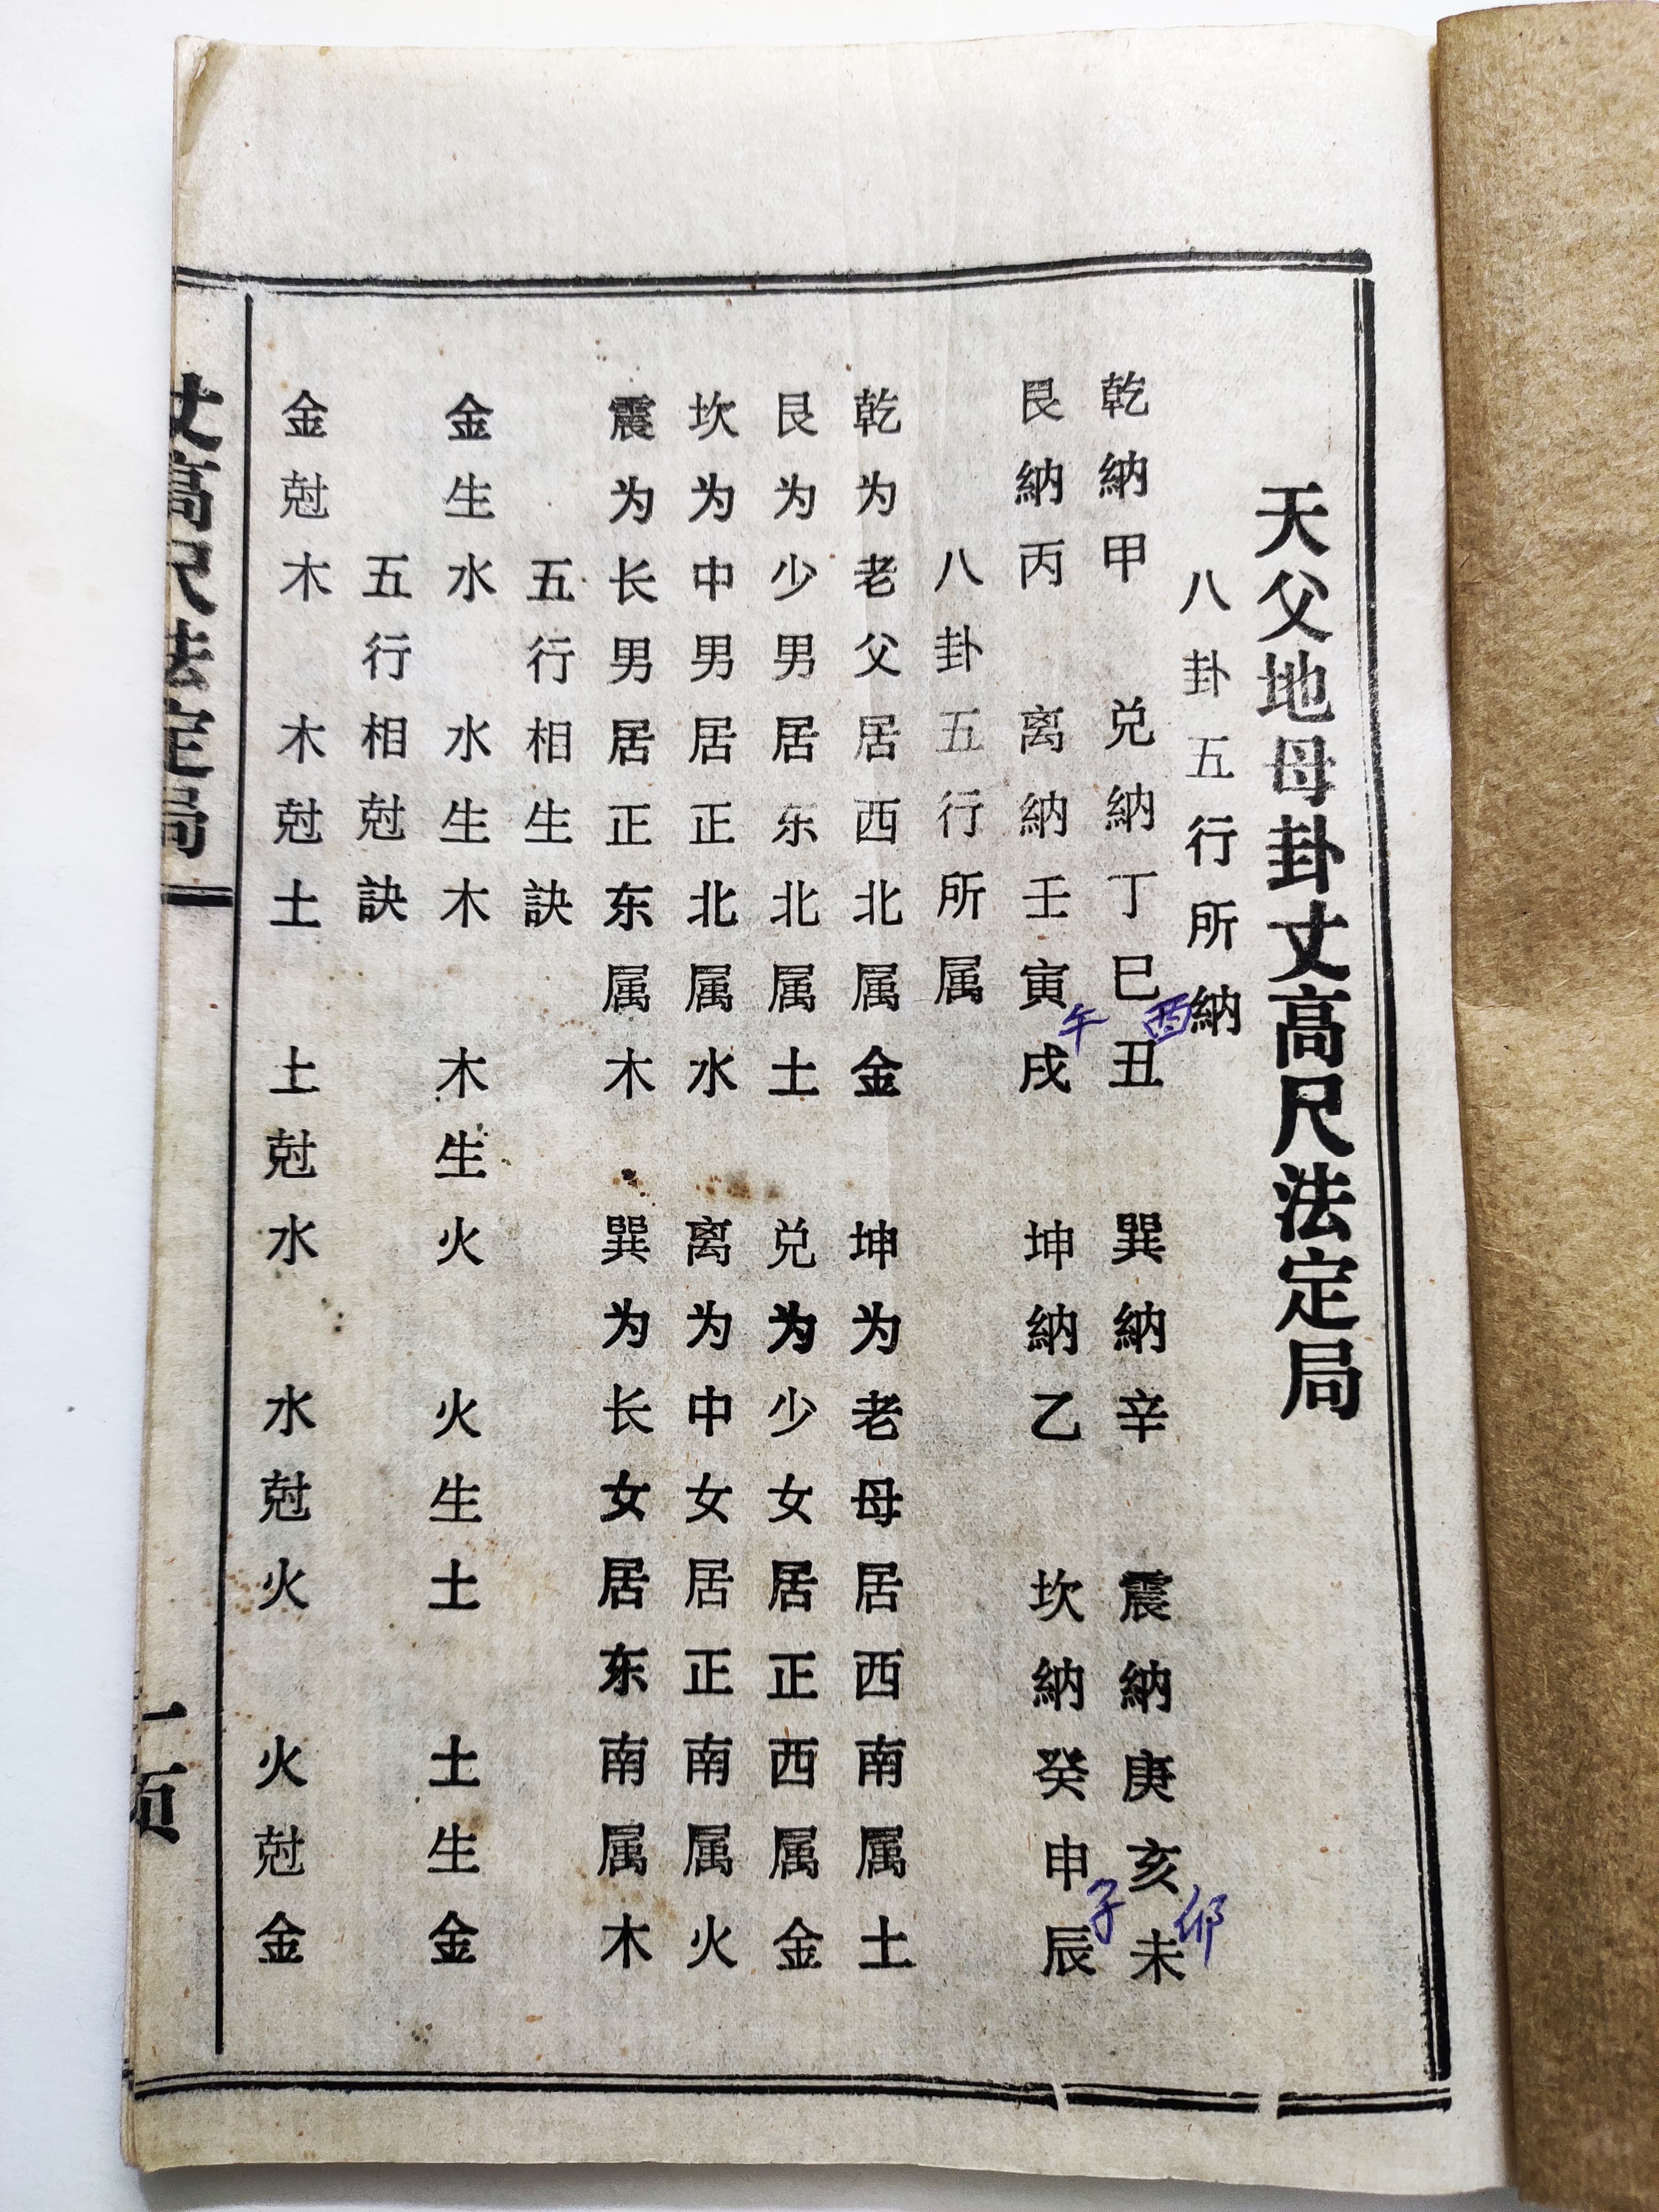 天父地母卦丈高尺法定局
八卦五行所納
乾納甲 兑納丁巳酉丑 巽納辛 震納庚亥卯未
艮納丙 离納壬寅午戌 坤納乙 坎納癸申子辰
八卦五行所属
乾为老父居西北属金 坤为老母居西南属土
艮为少男居东北属土 兑为少女居正西属金
坎为中男居正北属水 离为中女居正南属火
震为长男居正东属木 巽为长女居东南属木
五行相生訣
金生水 水生木 木生火 火生土 土生金
五行相尅訣
金尅木 木尅土 土尅水 水尅火 火尅金
丈高尺法定局 一页